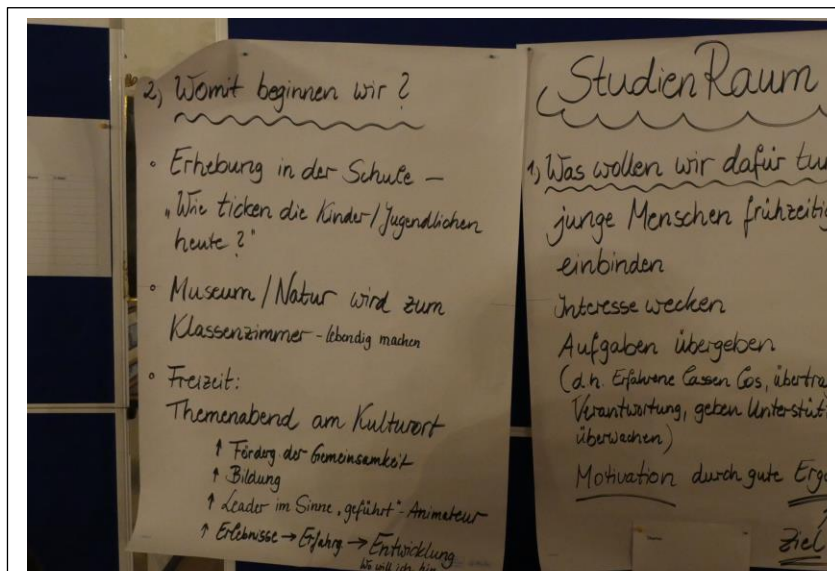 2) Womit beginnen wir?
• Erhebung in der Schule –
„Wie ticken die Kinder/Jugendlichen
heute?"
• Museum/Natur wird zum
Klassenzimmer – lebendig machen
• Freizeit:
Themenabend am Kulturort
↑ Förderg der Gemeinsamkeit
↑ Bildung
↑ Leader im Sinne „geführt" – Animateur
↑ Erlebnisse → Erfahrg → Entwicklung
Wo will ich hin
StudienRaum
1) Was wollen wir dafür tun
junge Menschen frühzeitig
einbinden
Interesse wecken
Aufgaben übergeben
(d.h. Erfahrene lassen los, übertra
Verantwortung, geben Unterstütz
überwachen)
Motivation durch gute Erge
Ziel